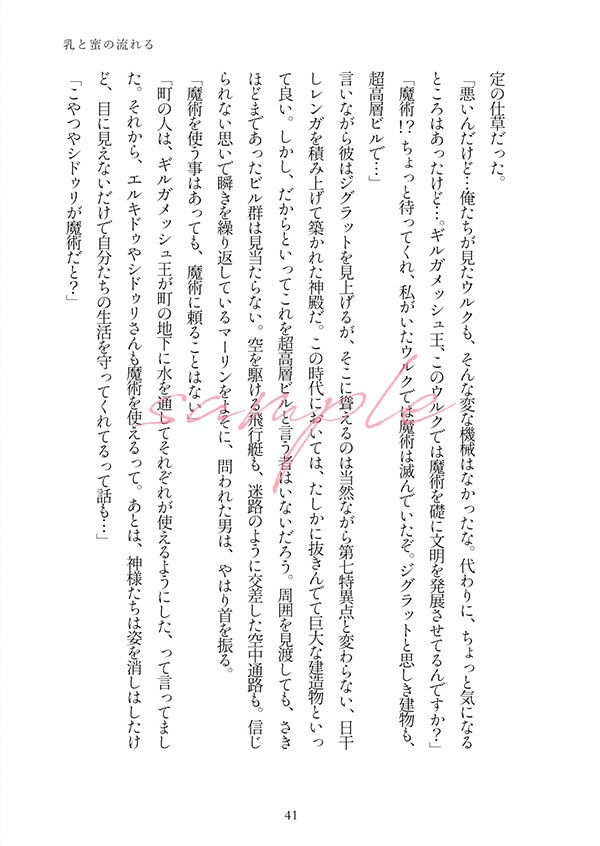 乳と蜜の流れる
定の仕草だった。
「悪いんだけど…俺たちが見たウルクも、そんな変な機械はなかったな。代わりに、ちょっと気になる
ところはあったけど…。ギルガメッシュ王、このウルクでは魔術を礎に文明を発展させてるんですか？」
「魔術!?ちょっと待ってくれ、私がいたウルクでは魔術は滅んでいたぞ。ジグラットと思しき建物も、
超高層ビルで…」
言いながら彼はジグラットを見上げるが、そこに聳えるのは当然ながら第七特異点と変わらない、日干
しレンガを積み上げて築かれた神殿だ。この時代においては、たしかに抜きんでて巨大な建造物といっ
て良い。しかし、だからといってこれを超高層ビルと言う者はいないだろう。周囲を見渡しても、さき
ほどまであったビル群は見当たらない。空を駆ける飛行艇も、迷路のように交差した空中通路も。信じ
られない思いで瞬きを繰り返しているマーリンをよそに、問われた男は、やはり首を振る。
「魔術を使う事はあっても、魔術に頼ることはない」
「町の人は、ギルガメッシュ王が町の地下に水を通してそれぞれが使えるようにした、って言ってまし
た。それから、エルキドゥやシドゥリさんも魔術を使えるって。あとは、神様たちは姿を消しはしたけ
ど、目に見えないだけで自分たちの生活を守ってくれてるって話も…」
「こやつやシドゥリが魔術だと？」
sample
41